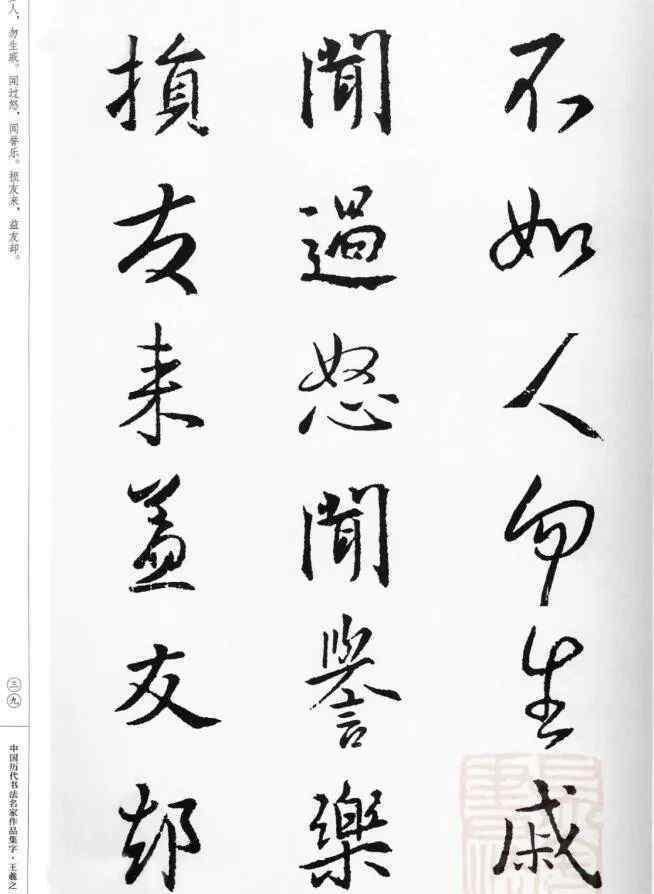 不如人勿生戚
聞過怒聞譽樂
損友来益友却
人，勿生戚。闻过怒，闻誉乐。损友来，益友却。
三九
中国历代书法名家作品集字·王羲之